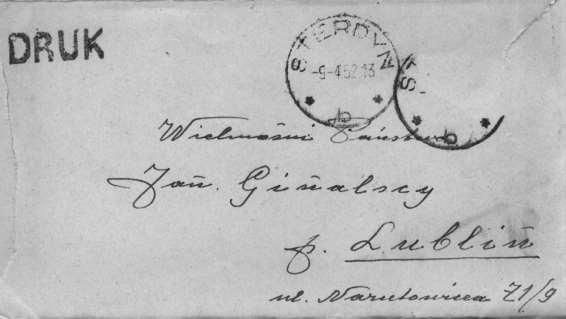 DRUK
STERDYŃ
-9-4.52.13
b
ST
b
Wielmożni Państwo
Jań. Gińalscy
p. Lubliń
ul. Narutowicza 71/9